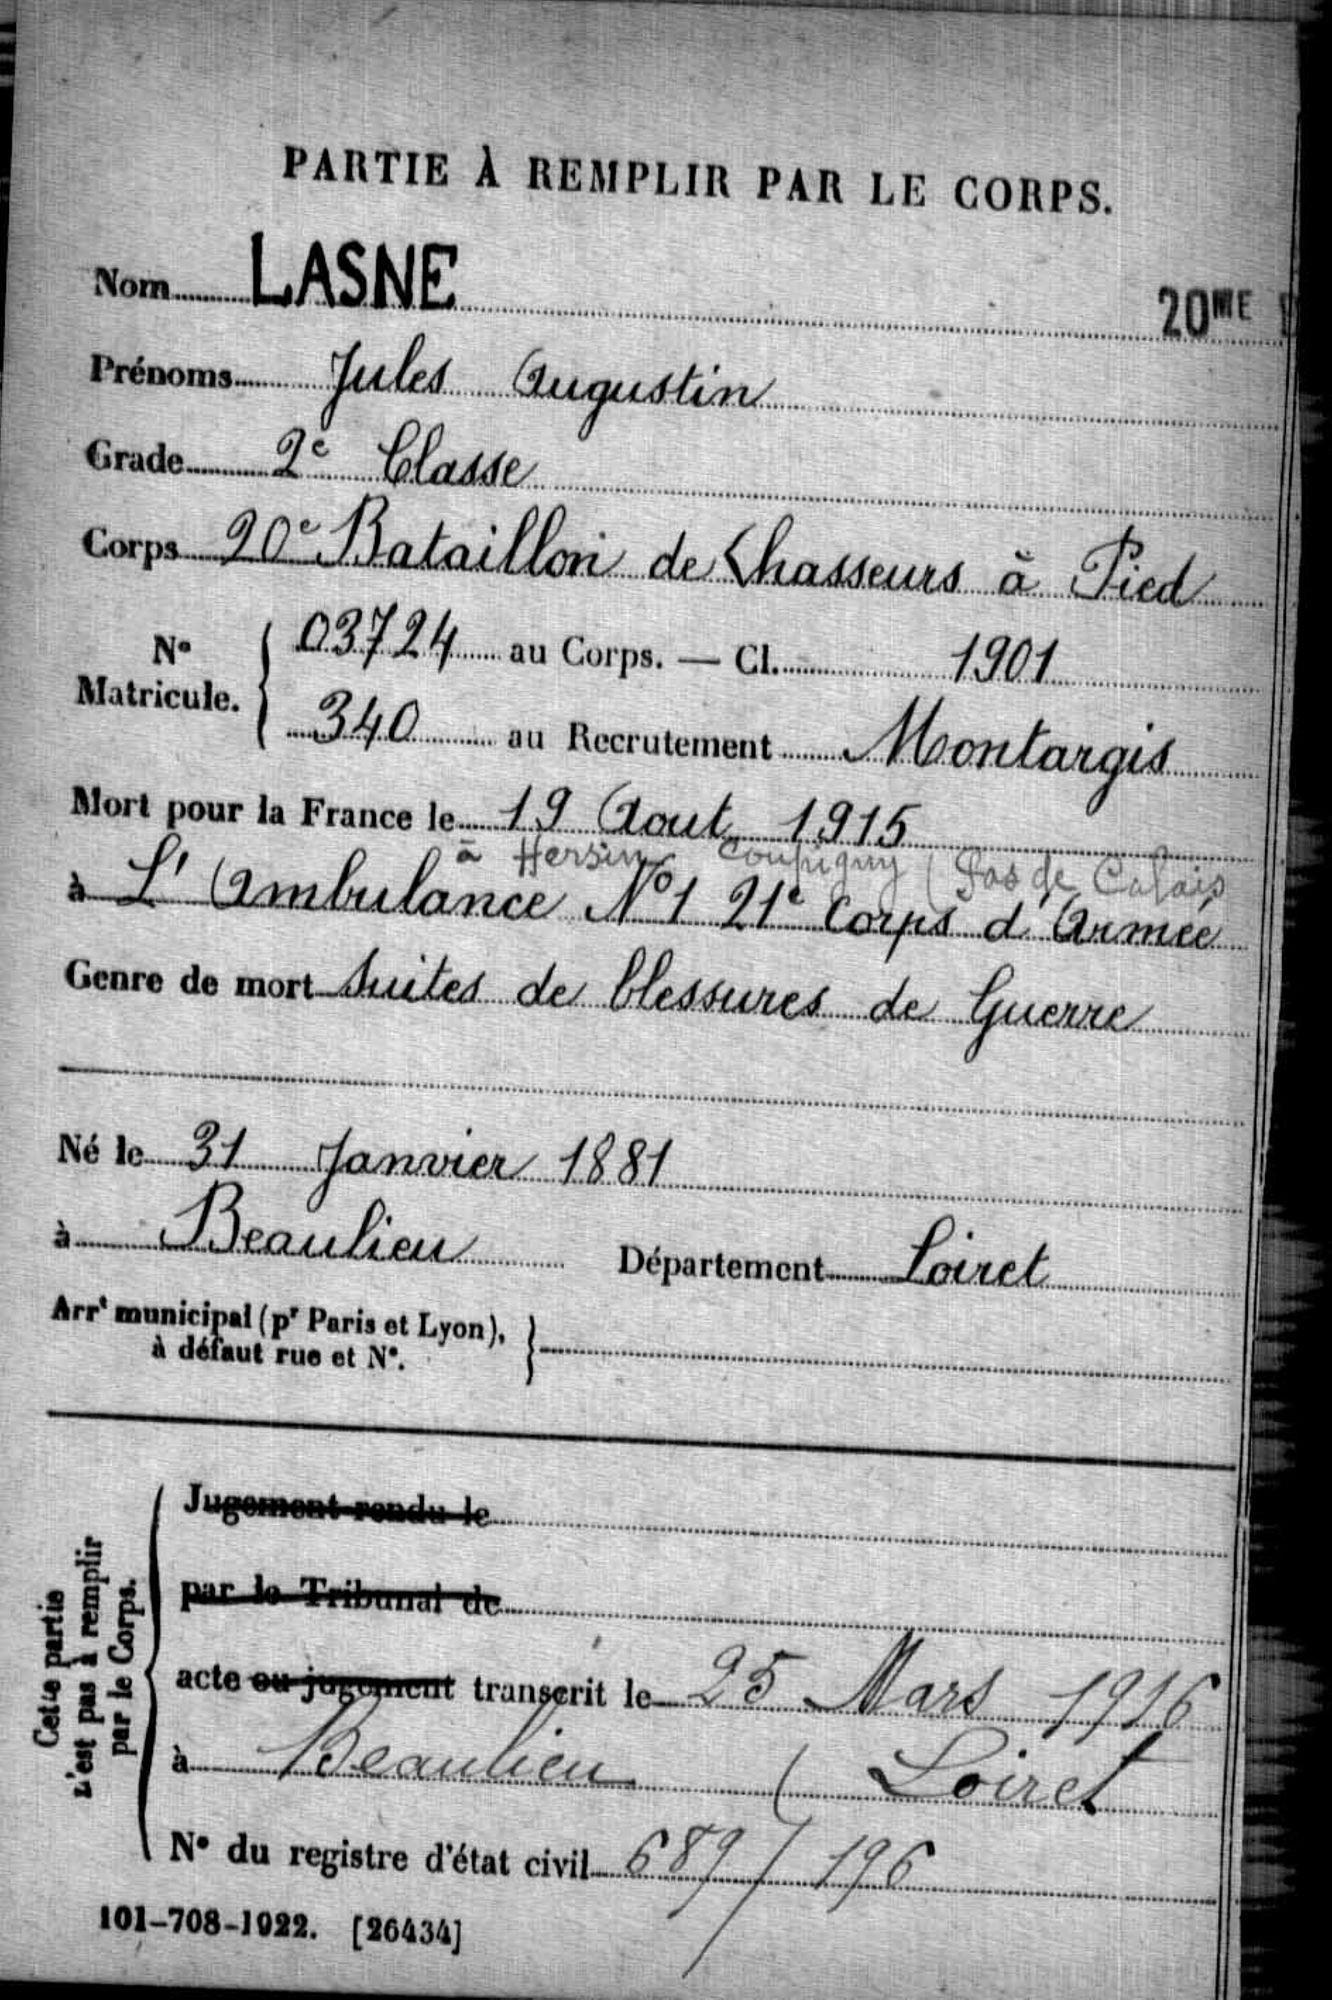 PARTIE À REMPLIR PAR LE CORPS.
Nom LASNE
20ME
Prénoms Jules Augustin
Grade 2e Classe
Corps 20e Bataillon de Chasseurs à Pied
No Matricule. { 03724 au Corps. — Cl. 1901
340 au Recrutement Montargis
Mort pour la France le 19 Aout 1915
à Hersin Coupigny (Pas de Calais
à L'Ambulance No1 21e Corps d'Armée
Genre de mort Suites de blessures de Guerre
Né le 31 Janvier 1881
à Beaulieu Département Loiret
Arrt municipal (pr Paris et Lyon),
à défaut rue et No.
Cette partie
n'est pas à remplir
par le Corps.
Jugement rendu le
par le Tribunal de
acte ou jugement transcrit le 25 Mars 1916
à Beaulieu ( Loiret
No du registre d'état civil 689 / 196
101-708-1922. [26434]